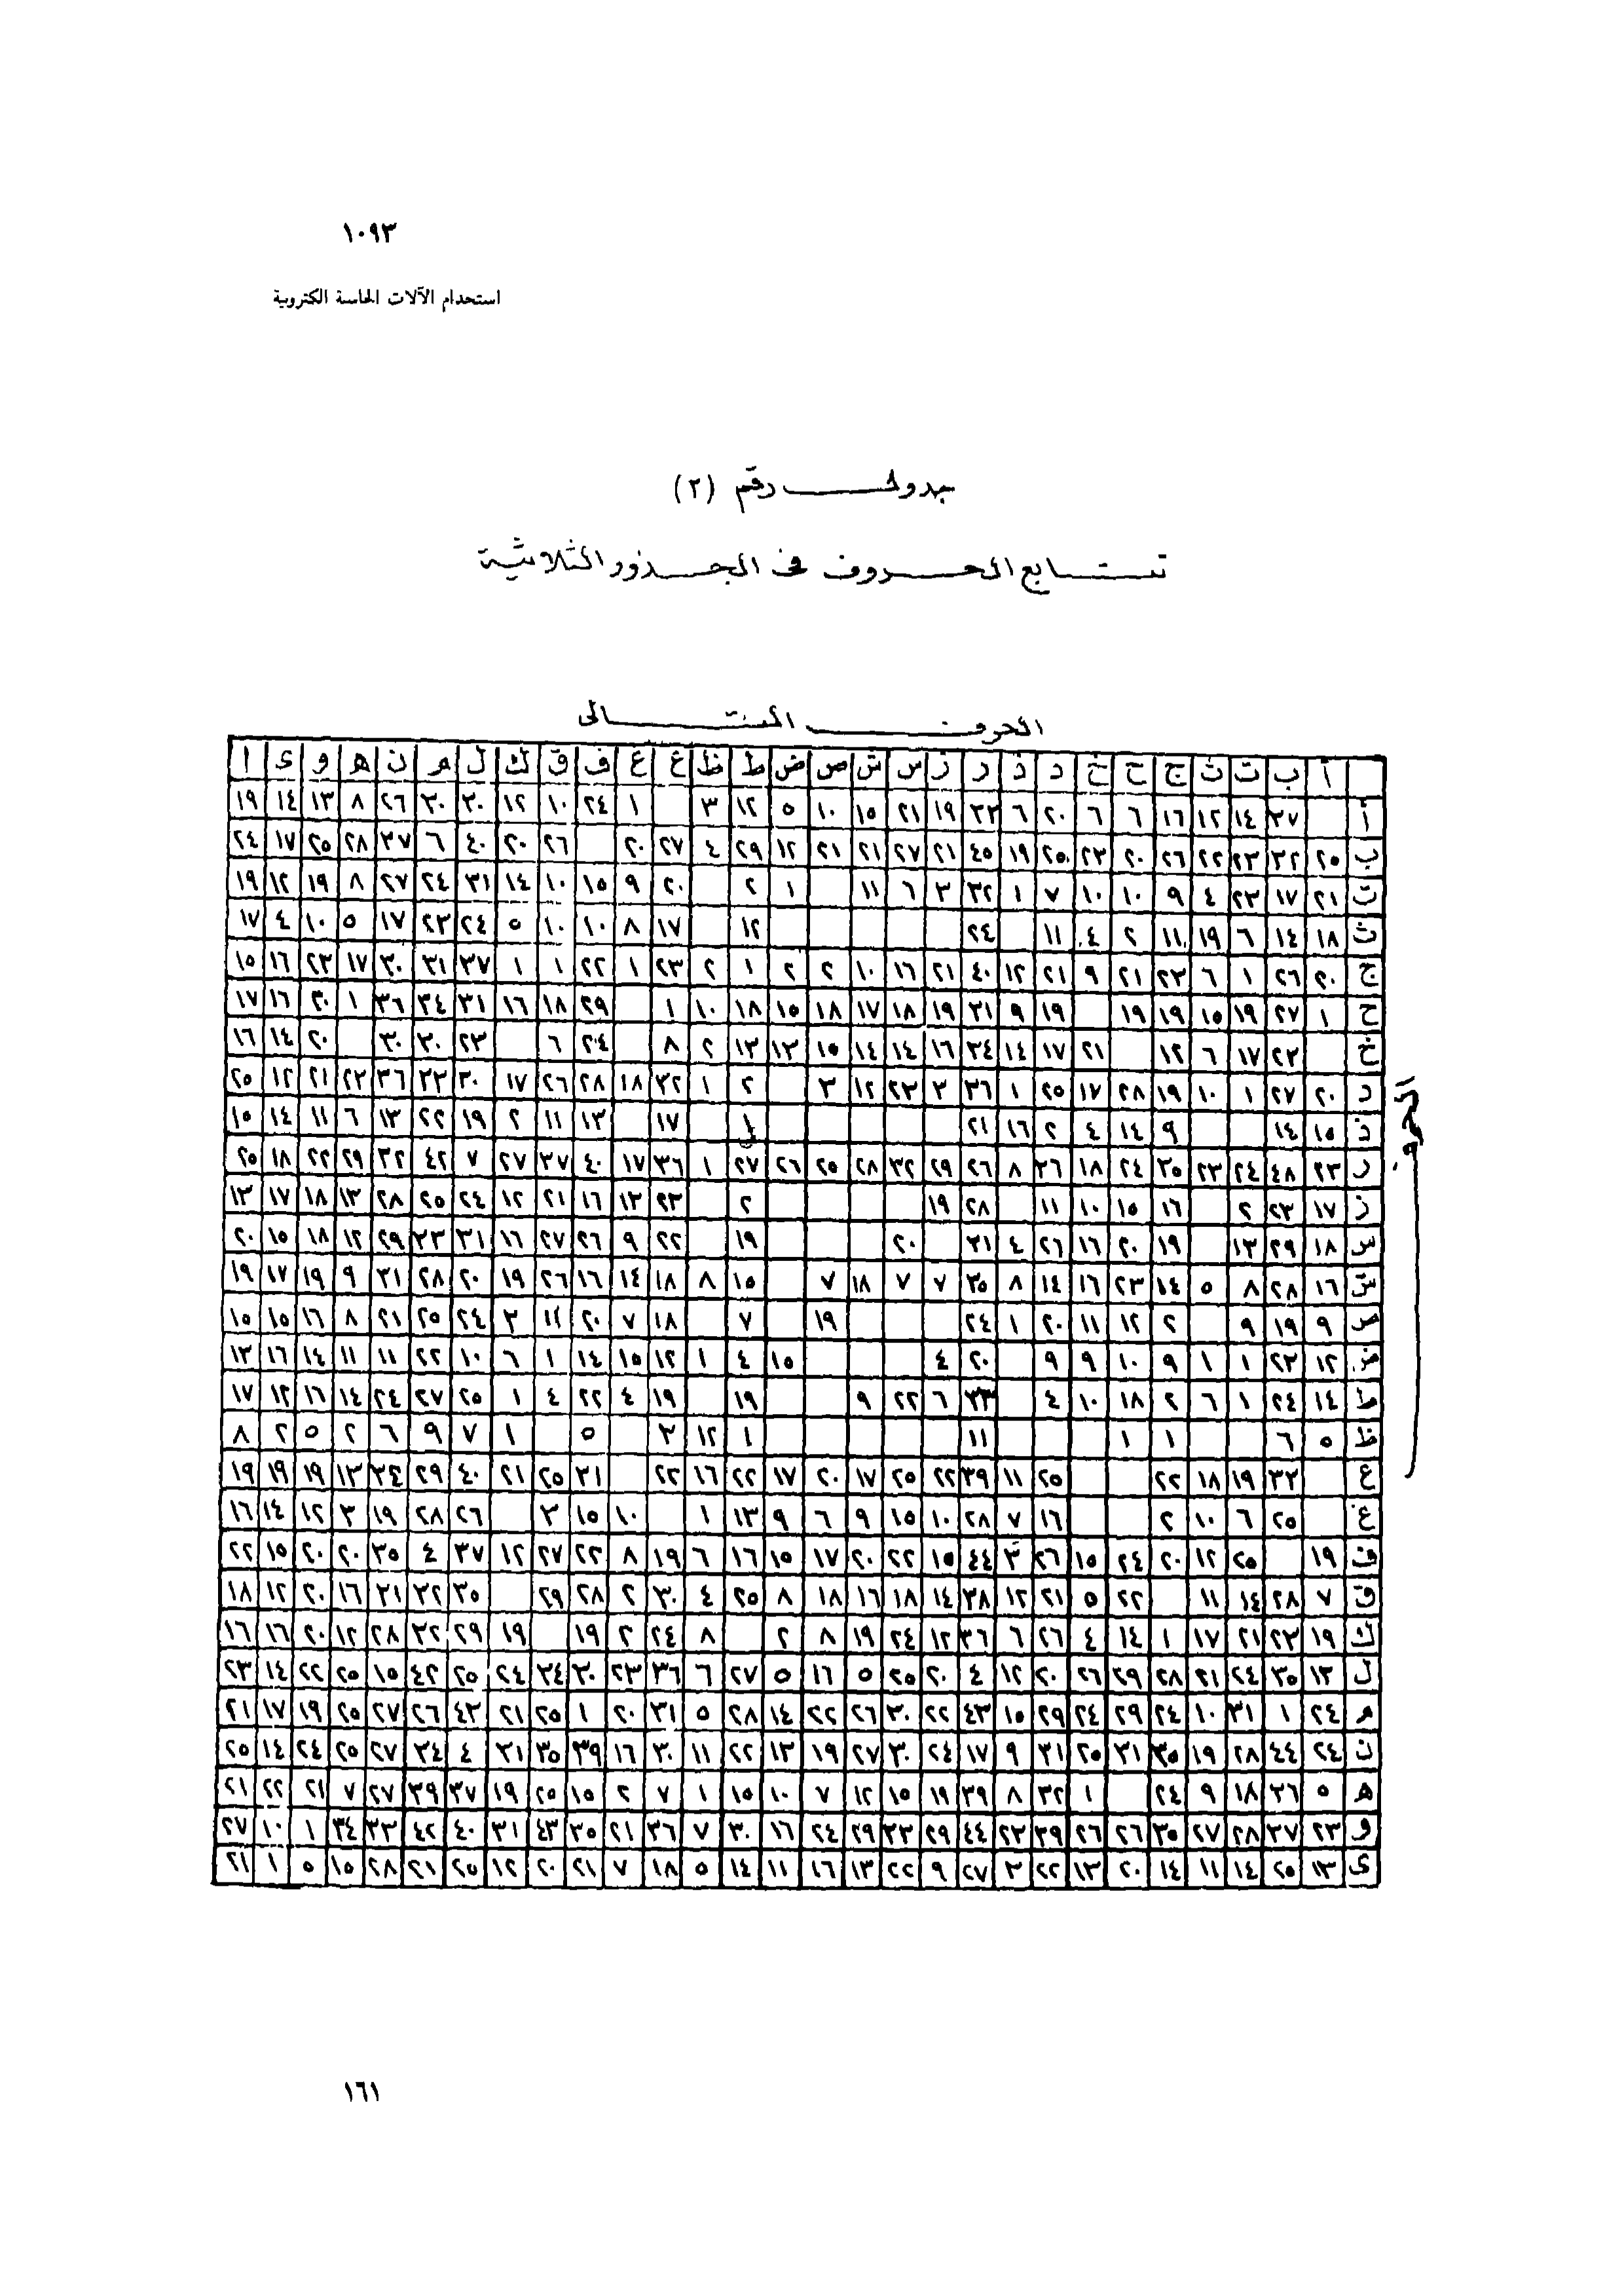 ١٠٩٣
استخدام الآلات الحاسبة الكترونية
جدول رقم (٢)
تتابع الحروف فى الجذور الثلاثية
الحرف التالى
أ ب ت ث ج ح خ د ذ ر ز س ش ص ض ط ظ ع غ ف ق ك ل م ن ه و ى ا
أ ٢٧ ١٤ ١٢ ١٦ ٦ ٦ ٢٠ ٦ ٣٣ ١٩ ٢١ ١٥ ١٠ ٥ ١٢ ٣ ١ ٢٤ ١٠ ١٢ ٣٠ ٣٠ ٢٦ ٨ ١٣ ١٤ ١٩
ب ٢٥ ٣٢ ٢٣ ٢٢ ٢٦ ٢٠ ٢٣ ٢٥ ١٩ ٤٥ ٢١ ٢٧ ٢١ ٢١ ١٢ ٢٩ ٤ ٢٧ ٢٠ ٢٦ ٢٠ ٤٠ ٦ ٣٧ ٢٨ ٢٥ ١٧ ٢٤
ت ٢١ ١٧ ٢٣ ٤ ٩ ١٠ ١٠ ٧ ١ ٣٢ ٣ ٦ ١١ ١ ٢ ٢٠ ٩ ١٥ ١٠ ١٤ ٣١ ٢٤ ٢٧ ٨ ١٩ ١٢ ١٩
ث ١٨ ١٤ ٦ ١٩ ١١ ٢ ٤ ١١ ٢٤ ١٢ ١٧ ٨ ١٠ ١٠ ٥ ٢٤ ٢٣ ١٧ ٥ ١٠ ٤ ١٧
ج ٢٠ ٢٦ ١ ٦ ٢٣ ٢١ ٩ ٢١ ١٢ ٤٠ ٢١ ١٦ ١٠ ٢ ٢ ١ ٢ ٢٣ ١ ٢٢ ١ ١ ٣٧ ٣١ ٣٠ ١٧ ٢٣ ١٦ ١٥
ح ١ ٢٧ ١٩ ١٥ ١٩ ١٩ ١٩ ٩ ٣١ ١٩ ١٨ ١٧ ١٨ ١٥ ١٨ ١٠ ١ ٢٩ ١٨ ١٦ ٣١ ٣٤ ٣٦ ١ ٣٠ ١٦ ١٧
خ ٢٣ ١٧ ٦ ١٢ ٢١ ١٧ ١٤ ٣٤ ١٦ ١٤ ١٤ ١٥ ١٣ ١٣ ٢ ٨ ٢٤ ٦ ٢٣ ٣٠ ٣٠ ٢٠ ١٤ ١٦
د ٢٠ ٢٧ ١ ١٠ ١٩ ٢٨ ١٧ ٢٥ ١ ٣٦ ٣ ٢٣ ١٢ ٣ ٢ ١ ٣٢ ١٨ ٢٨ ٢٦ ١٧ ٣٠ ٣٣ ٣٦ ٢٣ ٢١ ١٢ ٢٥
ذ ١٥ ١٤ ٩ ١٤ ٤ ٢ ١٦ ٢١ ١ ١٧ ١٣ ١١ ٢ ١٩ ٢٢ ١٣ ٦ ١١ ١٤ ١٥
ر ٢٣ ٤٨ ٢٤ ٢٣ ٣٥ ٢٤ ١٨ ٣٦ ٨ ٢٦ ٢٩ ٣٢ ٢٨ ٢٥ ٢٦ ٢٧ ١ ٣٦ ١٧ ٤٠ ٣٧ ٢٧ ٧ ٤٢ ٣٢ ٢٩ ٢٢ ١٨ ٢٥
ز ١٧ ٢٣ ٢ ١٦ ١٥ ١٠ ١١ ٢٨ ١٩ ٢ ٢٣ ١٣ ١٦ ٢١ ١٢ ٢٤ ٢٥ ٢٨ ١٣ ١٨ ١٧ ١٣
س ١٨ ٢٩ ١٣ ١٩ ٢٠ ١٦ ٢٦ ٤ ٣١ ٢٠ ١٩ ٢٢ ٩ ٢٦ ٢٧ ١٦ ٣١ ٣٣ ٢٩ ١٢ ١٨ ١٥ ٢٠
ش ١٦ ٢٨ ٨ ٥ ١٤ ٢٣ ١٦ ١٤ ٨ ٣٥ ٧ ٧ ١٨ ٧ ١٥ ٨ ١٨ ١٤ ١٦ ٢٦ ١٩ ٢٠ ٢٨ ٣١ ٩ ١٩ ١٧ ١٩
ص ٩ ١٩ ٩ ٢ ١٢ ١١ ٢٠ ١ ٢٤ ١٩ ٧ ١٨ ٧ ٢٠ ١١ ٣ ٢٤ ٢٥ ٢١ ٨ ١٦ ١٥ ١٥
ض ١٢ ٢٣ ١ ١ ٩ ١٠ ٩ ٩ ٢٠ ٤ ١٥ ٤ ١ ١٢ ١٥ ١٤ ١ ٦ ١٠ ٢٢ ١١ ١١ ١٤ ١٦ ١٣
ط ١٤ ٢٤ ١ ٦ ٢ ١٨ ١٠ ٤ ٣٣ ٦ ٢٢ ٩ ١٩ ١٩ ٤ ٢٢ ٤ ١ ٢٥ ٢٧ ٢٤ ١٤ ١٦ ١٢ ١٧
ظ ٥ ٦ ١ ١ ١١ ١ ١٢ ٣ ٥ ١ ٧ ٩ ٦ ٢ ٥ ٢ ٨
ع ٣٢ ١٩ ١٨ ٢٢ ٢٥ ١١ ٣٩ ٢٢ ٢٥ ١٧ ٢٠ ١٧ ٢٢ ١٦ ٢٢ ٣١ ٢٥ ٢١ ٤٠ ٢٩ ٣٤ ١٣ ١٩ ١٩ ١٩
غ ٢٥ ٦ ١٠ ٢ ١٦ ٧ ٢٨ ١٠ ١٥ ٩ ٦ ٩ ١٣ ١ ١٠ ١٥ ٣ ٢٦ ٢٨ ١٩ ٣ ١٢ ١٤ ١٦
ف ١٩ ٢٥ ١٢ ٢٠ ٢٤ ١٥ ٢٦ ٣ ٤٤ ١٥ ٢٢ ٢٠ ١٧ ١٥ ١٦ ٦ ١٩ ٨ ٢٢ ٢٧ ١٢ ٣٧ ٤ ٣٥ ٢٠ ٢٠ ١٥ ٢٢
ق ٧ ٢٨ ١٤ ١١ ٢٢ ٥ ٢١ ١٢ ٣٨ ١٤ ١٨ ١٦ ١٨ ٨ ٢٥ ٤ ٣٠ ٢ ٢٨ ٢٩ ٣٥ ٣٢ ٣١ ١٦ ٢٠ ١٢ ١٨
ك ١٩ ٢٣ ٢١ ١٧ ١ ١٤ ٤ ٢٦ ٦ ٣٦ ١٢ ٢٤ ١٩ ٨ ٢ ٨ ٢٤ ٢ ١٩ ١٩ ٢٩ ٣٢ ٢٨ ١٢ ٢٠ ١٦ ١٦
ل ١٣ ٣٥ ٢٤ ٢١ ٢٨ ٢٩ ٢٦ ٢٠ ١٢ ٤ ٢٠ ٢٥ ٥ ١٦ ٥ ٢٧ ٦ ٣٦ ٢٣ ٣٠ ٣٤ ٢٤ ٢٥ ٤٢ ١٥ ٢٥ ٢٢ ١٤ ٢٣
م ٢٤ ١ ٣١ ١٠ ٢٤ ٢٩ ٢٤ ٢٩ ١٥ ٤٣ ٢٢ ٣٠ ٢٦ ٢٢ ١٤ ٢٨ ٥ ٣١ ٢٠ ١ ٢٥ ٢١ ٤٣ ٢٦ ٢٧ ٢٥ ١٩ ١٧ ٢١
ن ٢٤ ٤٤ ٢٨ ١٩ ٣٥ ٣١ ٢٥ ٣١ ٩ ١٧ ٢٤ ٣٠ ٢٧ ١٩ ١٣ ٢٢ ١١ ٣٠ ١٦ ٣٩ ٣٥ ٣١ ٤ ٣٤ ٢٧ ٢٥ ٢٤ ١٤ ٢٥
ه ٥ ٢٦ ١٨ ٩ ٢٤ ١ ٣٢ ٨ ٣٩ ١٩ ١٥ ١٢ ٧ ١٠ ١٥ ١ ٧ ٢ ١٥ ٢٥ ١٩ ٣٧ ٣٩ ٢٧ ٧ ٢١ ٢٢ ٢١
و ٢٣ ٣٧ ٢٨ ٢٧ ٣٥ ٢٦ ٢٦ ٣٩ ٢٣ ٤٤ ٢٩ ٣٣ ٢٩ ٢٤ ١٦ ٣٠ ٧ ٣٦ ٢١ ٣٥ ٤٣ ٣١ ٤٠ ٤٢ ٣٣ ٣٤ ١ ١٠ ٢٧
ى ١٣ ٢٥ ١٤ ١١ ١٤ ٢٠ ١٣ ٢٢ ٣ ٢٧ ٩ ٢٢ ١٣ ١٦ ١١ ١٤ ٥ ١٨ ٧ ٢١ ٢٠ ١٢ ٢٥ ٢١ ٢٨ ١٥ ٥ ١ ٢١
١٦١